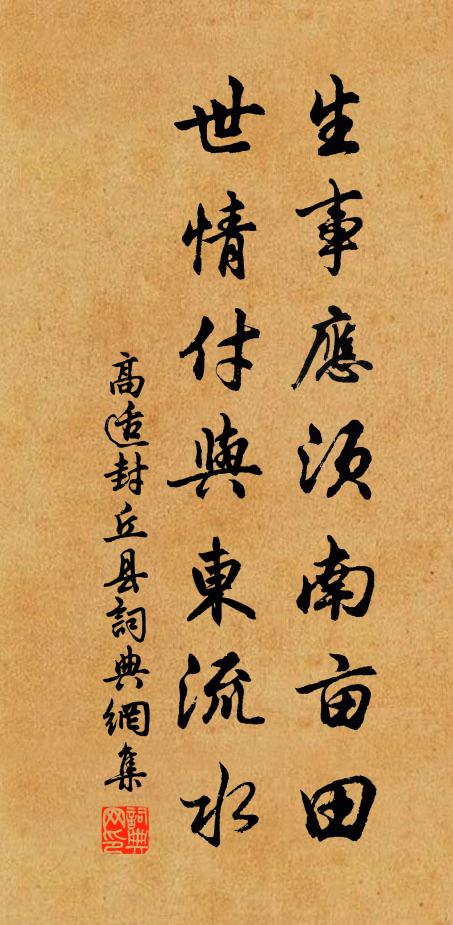 生事應須南亩田
世情付與東流水
高适封丘县詞典網集
詞典
网印